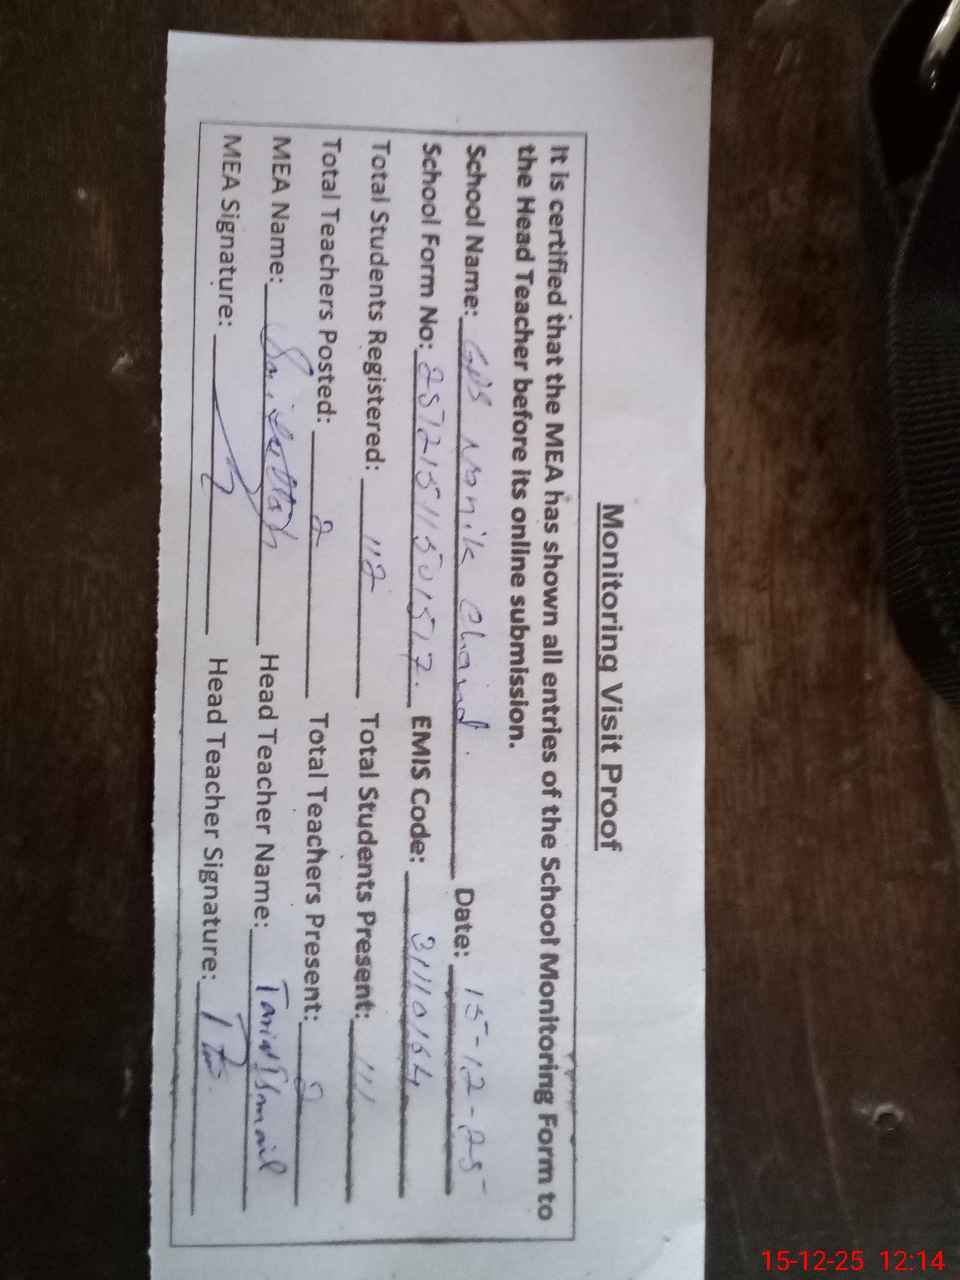 Monitoring Visit Proof
It is certified that the MEA has shown all entries of the School Monitoring Form to
the Head Teacher before its online submission.
School Name: GPS Nanik Chand. Date: 15-12-25
School Form No: EMIS Code: 31110164
Total Students Registered: 112 Total Students Present: 111
Total Teachers Posted: 2 Total Teachers Present: 2
MEA Name: Head Teacher Name: Tariq Ismail
MEA Signature: Head Teacher Signature:
15-12-25 12:14